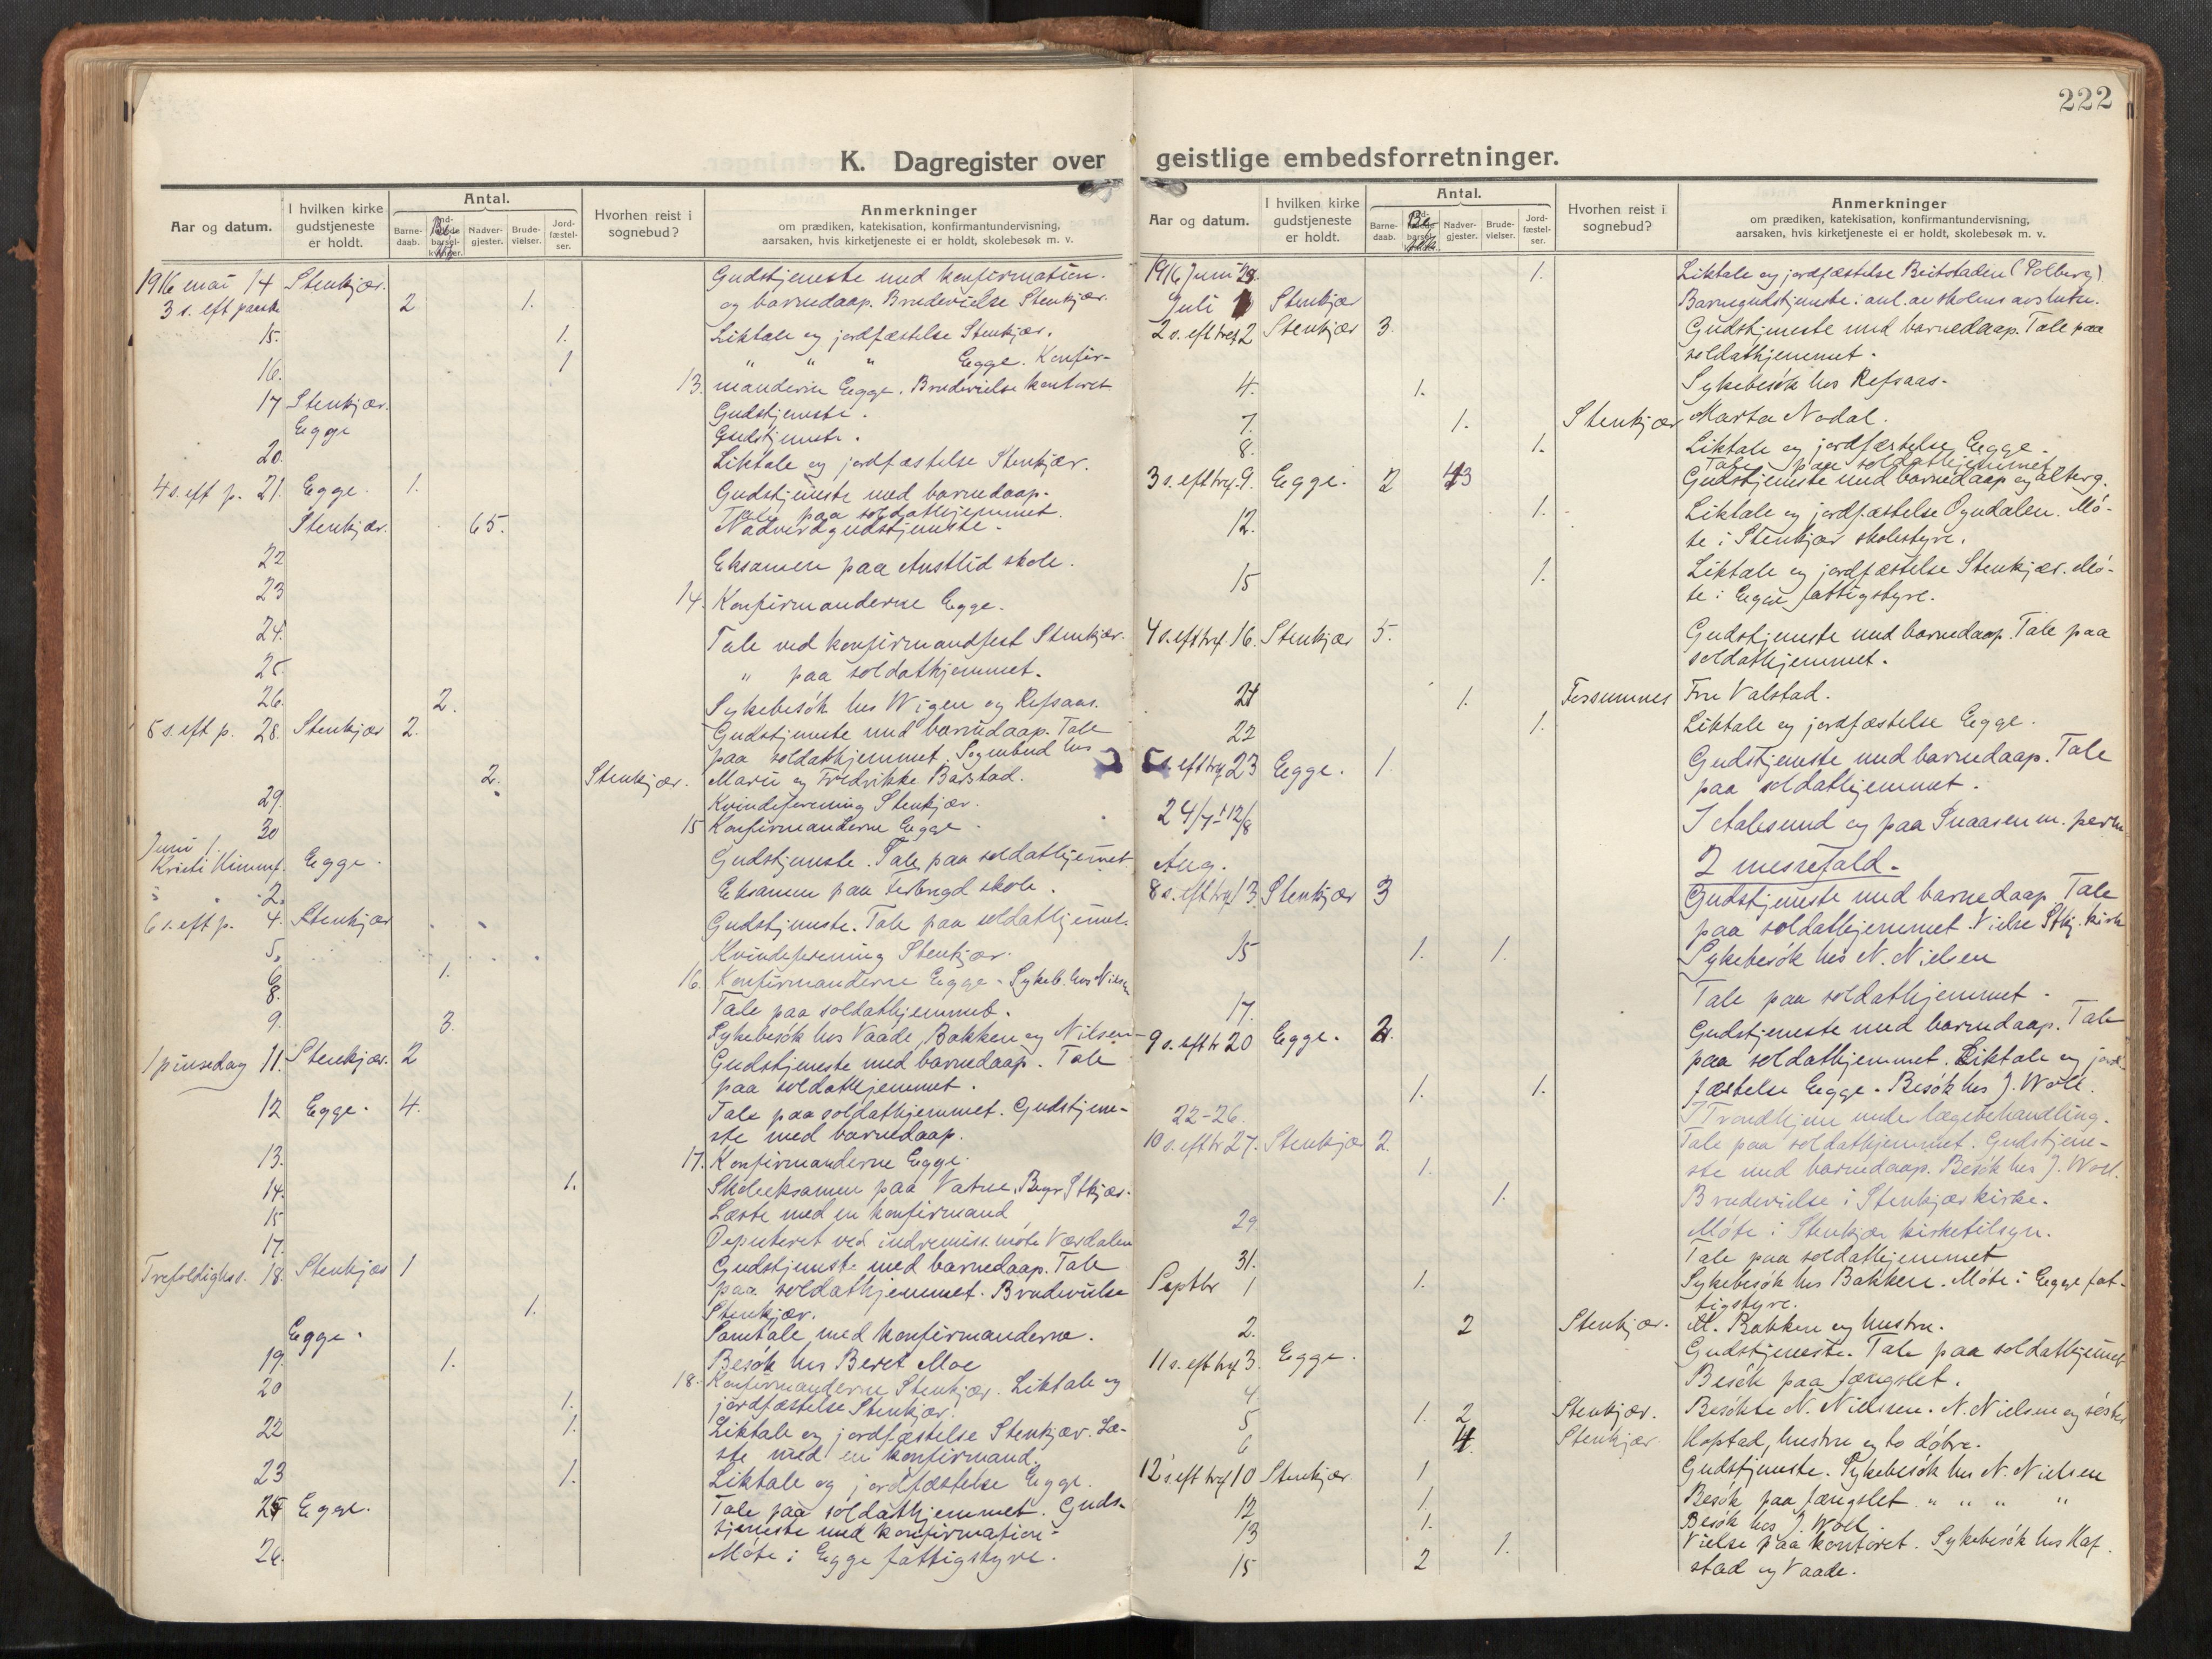 222
K. Dagregister over geistlige embedsforretninger.
Aar og datum. I hvilken kirke gudstjeneste er holdt. Antal. Barne-daab. Besøk Nadver-gjester. Brude-vielser. Jord-fæstel-ser. Hvorhen reist i sognebud? Anmerkninger
om prædiken, katekisation, konfirmantundervisning,
aarsaken, hvis kirketjeneste ei er holdt, skolebesøk m. v.
1916 mai 14 Stenkjær. Gudstjeneste med konfirmation.
3 s. eft paaske 2 1. og barnedaap. Brudevielse Stenkjær.
15. 1. Liktale og jordfæstelse Stenkjær.
16. 1 " " " Egge. Konfir-
13. manderne Egge. Brudevielse kontoret
17 Stenkjær. Gudstjeneste.
Egge Gudstjeneste.
20. Liktale og jordfæstelse Stenkjær.
4 s. eft p. 21. Egge. 1. Gudstjeneste med barnedaap.
Tale paa soldathjemmet.
Stenkjær. 65. Nadverdgudstjeneste.
22 Eksamen paa Austlid skole.
23 14. Konfirmanderne Egge.
24. Tale ved konfirmandfest Stenkjær.
25. " paa soldathjemmet.
26. 2. Sykebesök hos Wigen og Refsaas.
5 s. eft p. 28. Stenkjær 2. Gudstjeneste med barnedaap. Tale
paa soldathjemmet. Sognebud hos
2. Stenkjær. Marie og Fredrikke Barstad.
29. Kvindeforening Stenkjær.
30 15 Konfirmanderne Egge.
Juni 1.
Kristi Himmf. Egge. Gudstjeneste. Tale paa soldathjemmet
2. Eksamen paa skole.
6 s. eft p. 4. Stenkjær Gudstjeneste. Tale paa soldathjemmet.
5. Kvindeforening Stenkjær.
6. 1. 16. Konfirmanderne Egge. Sykeb. hos Nielsen
8. Tale paa soldathjemmet.
9. 3. Sykebesök hos Vaade, Bakken og Nilsen
1 pinsedag 11. Stenkjær. 2 Gudstjeneste med barnedaap. Tale
paa soldathjemmet.
12 Egge. 4. Tale paa soldathjemmet. Gudstjene-
ste med barnedaap.
13. 17. Konfirmanderne Egge.
14. 1. Skoleeksamen paa Vatne. Begr. Stkjær.
15 Læste med en konfirmand
17. Deputeret ved indremiss. möte Værdalen
Trefoldighs. 18. Stenkjær 1 Gudstjeneste med barnedaap. Tale
paa soldathjemmet. Brudevielse
1. Stenkjær.
Egge. Samtale med konfirmanderne.
19. 1. Besök hos Beret Moe
20 18. Konfirmanderne Stenkjær. Liktale og
1. jordfæstelse Stenkjær.
22 1. Liktale og jordfæstelse Stenkjær. Læ-
ste med en konfirmand.
23 1. Liktale og jordfæstelse Egge.
25 Egge. Tale paa soldathjemmet. Guds-
tjeneste med konfirmation.
26. Möte i Egge fattigstyre.
Aar og datum. I hvilken kirke gudstjeneste er holdt. Antal. Barne-daab. Besøk Nadver-gjester. Brude-vielser. Jord-fæstel-ser. Hvorhen reist i sognebud? Anmerkninger
om prædiken, katekisation, konfirmantundervisning,
aarsaken, hvis kirketjeneste ei er holdt, skolebesøk m. v.
1916 Juni 29. 1. Liktale og jordfæstelse Beitstaden (Solberg)
Juli 1 Stenkjær Barnegudstjeneste i anl. av skolens avslutn.
2 s. eft tref 2 Stenkjær 3. Gudstjeneste med barnedaap. Tale paa
soldathjemmet.
4. 1. Sykebesök hos Refsaas.
7. 1. Stenkjær Marta Nodal.
8. 1. Liktale og jordfæstelse Egge.
Tale paa soldathjemmet
3 s. eft tref. 9. Egge. 2 13 Gudstjeneste med barnedaap og alterg.
12. 1. Liktale og jordfæstelse Ogndalen. Mö-
te i Stenkjær skolestyre.
15 1. Liktale og jordfæstelse Stenkjær. Mö-
te i Egge fattigstyre.
4 s. eft tref. 16. Stenkjær 5. Gudstjeneste med barnedaap. Tale paa
soldathjemmet.
21 1. Fossumnes Fru Valstad.
22 1. Liktale og jordfæstelse Egge.
5 s. eft tref 23 Egge. 1. Gudstjeneste med barnedaap. Tale
paa soldathjemmet.
24/7 - 12/8 I Aalesund og paa Snaasen m. perm.
2 messefald.
Aug.
8 s. eft tref 13. Stenkjær 3 Gudstjeneste med barnedaap. Tale
paa soldathjemmet. Vielse Stkj. kirke
15 1. 1. Sykebesök hos N. Nielsen
17. Tale paa soldathjemmet.
9 s. eft tr 20 Egge. 2. Gudstjeneste med barnedaap. Tale
paa soldathjemmet. Liktale og jord
1. 1. fæstelse Egge. Besök hos J. Woll.
22-26. I Trondhjem under lægebehandling.
10 s. eft tr 27. Stenkjær 2. Tale paa soldathjemmet. Gudstjene-
1. ste med barnedaap. Besök hos J. Woll.
1. Brudevielse i Stenkjær kirke.
29. Möte i Stenkjær kirketilsyn.
31. Tale paa soldathjemmet
Septbr 1 1. Sykebesök hos Bakken. Möte i Egge fat-
tigstyre.
2. 2 Stenkjær. M. Bakken og hustru.
11 s. eft tref 3. Egge. Gudstjeneste. Tale paa soldathjemmet
4 Besök paa fængslet.
5 1. 2 Stenkjær. Besökte N. Nielsen. N. Nielsen og söster
6 4. Stenkjær. Hopstad, hustru og to döbre.
12 s. eft tref 10 Stenkjær. 1 Gudstjeneste. Sykebesök hos N. Nielsen
12 1. Besök paa fængslet. " " " "
13 1. Besök hos J. Woll
1. Vielse paa kontoret. Sykebesök hos Haf
15 2 stad og Vaade.